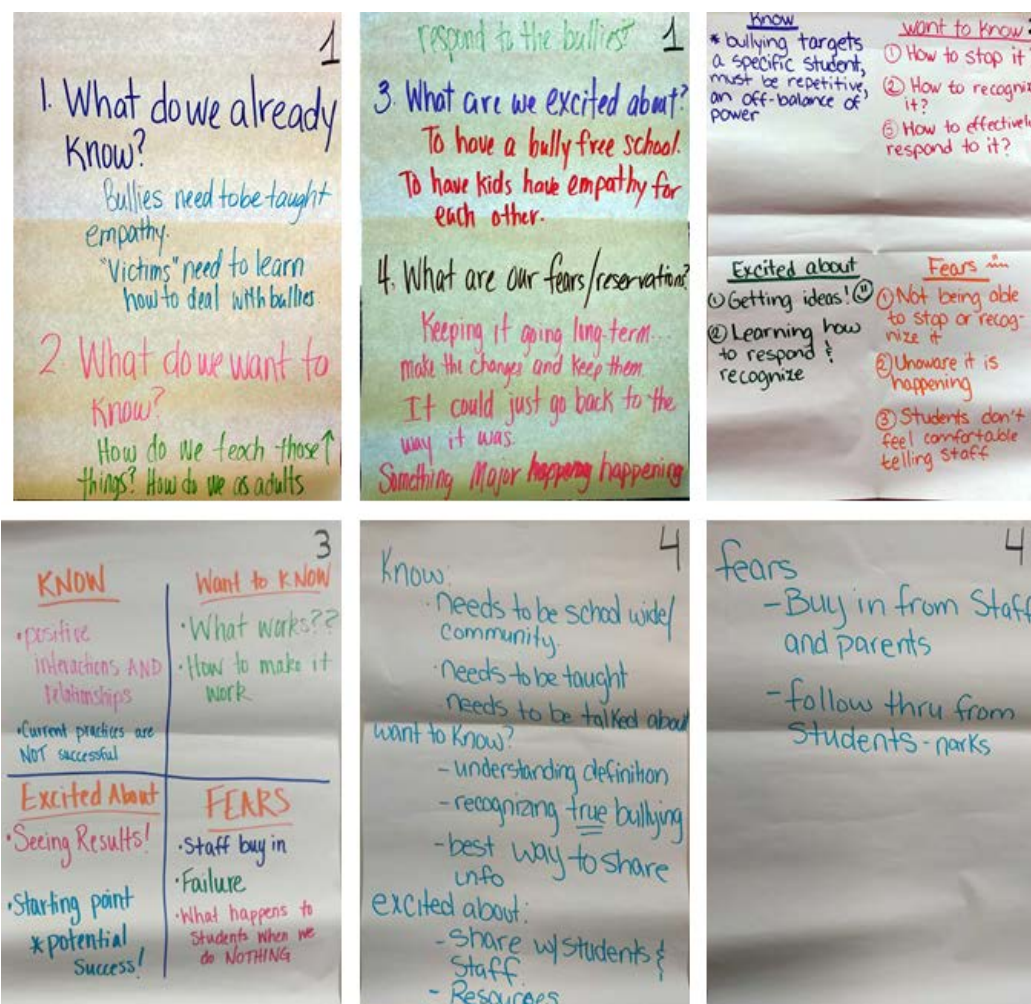 1
1. What do we already
Know?
Bullies need to be taught
empathy.
"Victims" need to learn
how to deal with bullies.
2. What do we want to
Know?
How do we teach those ↑
things? How do we as adults
respond to the bullies? 1
3. What are we excited about?
To have a bully free school.
To have kids have empathy for
each other.
4. What are our fears/reservations?
Keeping it going long-term...
make the changes and keep them.
It could just go back to the
way it was.
Something Major happening happening
Know
* bullying targets
a specific student,
must be repetitive,
an off-balance of
power
want to know
① How to stop it
② How to recogniz
it?
③ How to effectivel
respond to it?
Excited about
① Getting ideas!
② Learning how
to respond &
recognize
Fears
① Not being able
to stop or recog-
nize it
② Unaware it is
happening
③ Students don't
feel comfortable
telling staff
3
KNOW
• positive
interactions AND
relationships
• Current practices are
NOT successful
Want to KNOW
• What works??
• How to make it
work
Excited About
• Seeing Results!
• Starting point
* potential
Success!
FEARS
• Staff buy in
• Failure
• What happens to
students when we
do NOTHING
4
Know:
· needs to be school wide/
community.
· needs to be taught
needs to be talked about
want to know?
- understanding definition
- recognizing true bullying
- best way to share
info
excited about:
- share w/students &
Staff.
- Resources
4
fears
- Buy in from Staff
and parents
- follow thru from
Students - narks